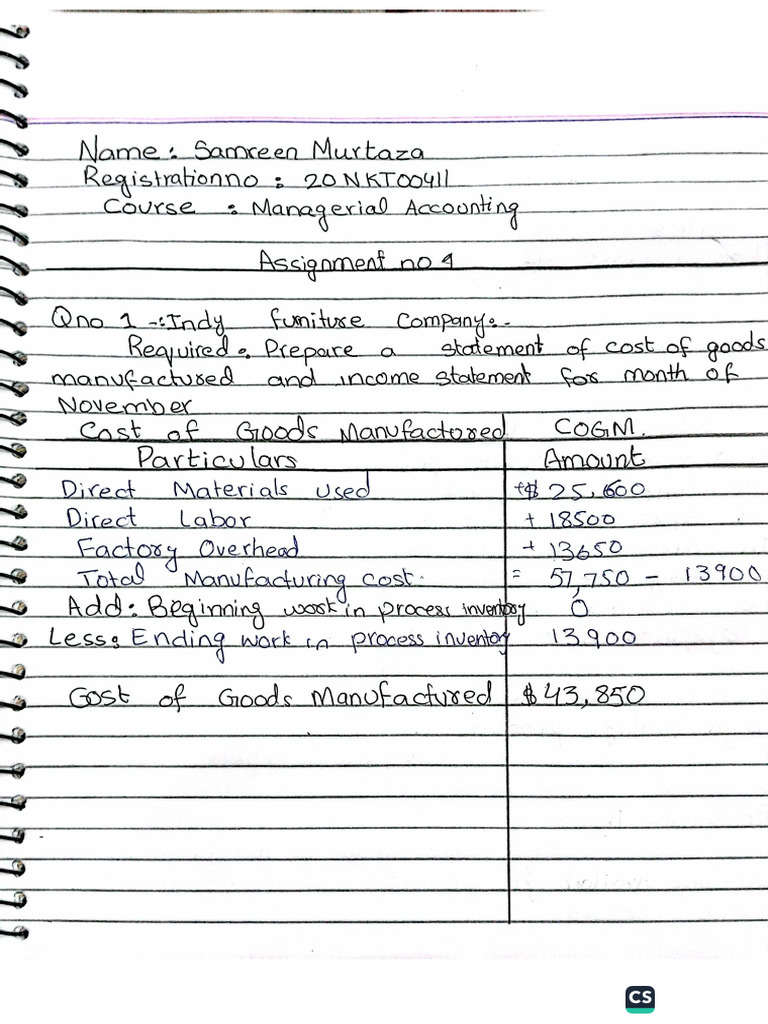 Name: Samreen Murtaza
Registrationno : 20NKT00411
Course : Managerial Accounting
Assignment no 1
Qno 1 -: Indy furniture Company:-
Required: Prepare a statement of cost of goods
manufactured and income statement for month of
November
Cost of Goods Manufactored COGM.
Particulars Amount
Direct Materials used +$ 25,600
Direct Labor + 18500
Factory Overhead + 13650
Total Manufacturing cost. = 57,750 - 13900
Add: Beginning work in process inventory 0
Less: Ending work in process inventory 13900
Cost of Goods Manufactured $43,850
CS